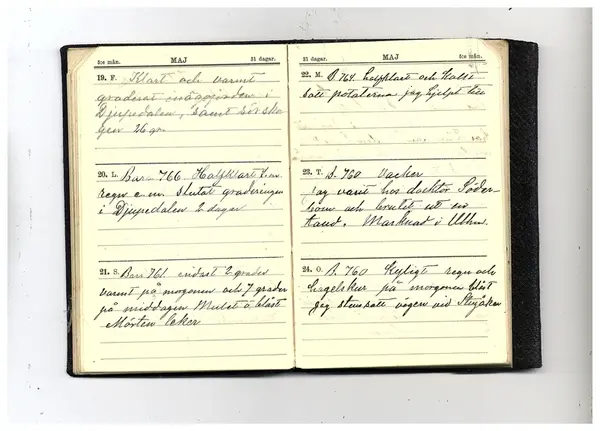 5:e mån. MAJ 31 dagar.
19. F. Klart och varmt
graderat inägojorden i
Djupedalen, samt
gen 26 gr.
20. L. Bar. 766 Halfklart
regn e.m. Slutat graderingen
i Djupedalen 2 dagar
21. S. Bar 761. endast 2 grader
varmt på morgonen och 7 grader
på middagen Mulet o blåst
Mårten leker
31 dagar. MAJ 5:e mån.
22. M. B 764. halfklart och
satt potaterna jag hjelpt till
23. T. B. 760 Vacker
jag varit hos doktor Söder-
bom och brutet ut en
tand. Marknad i
24. O. B. 760 Kyligt regn och
hagelskur på morgonen blåst
jeg stensatt vägen vid